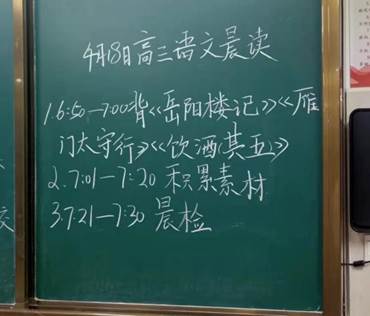 4月18日高三语文晨读
1.6:50—7:00背《岳阳楼记》《雁
门太守行》《饮酒(其五)》
2.7:01—7:20 积累素材
3.7:21—7:30 晨检